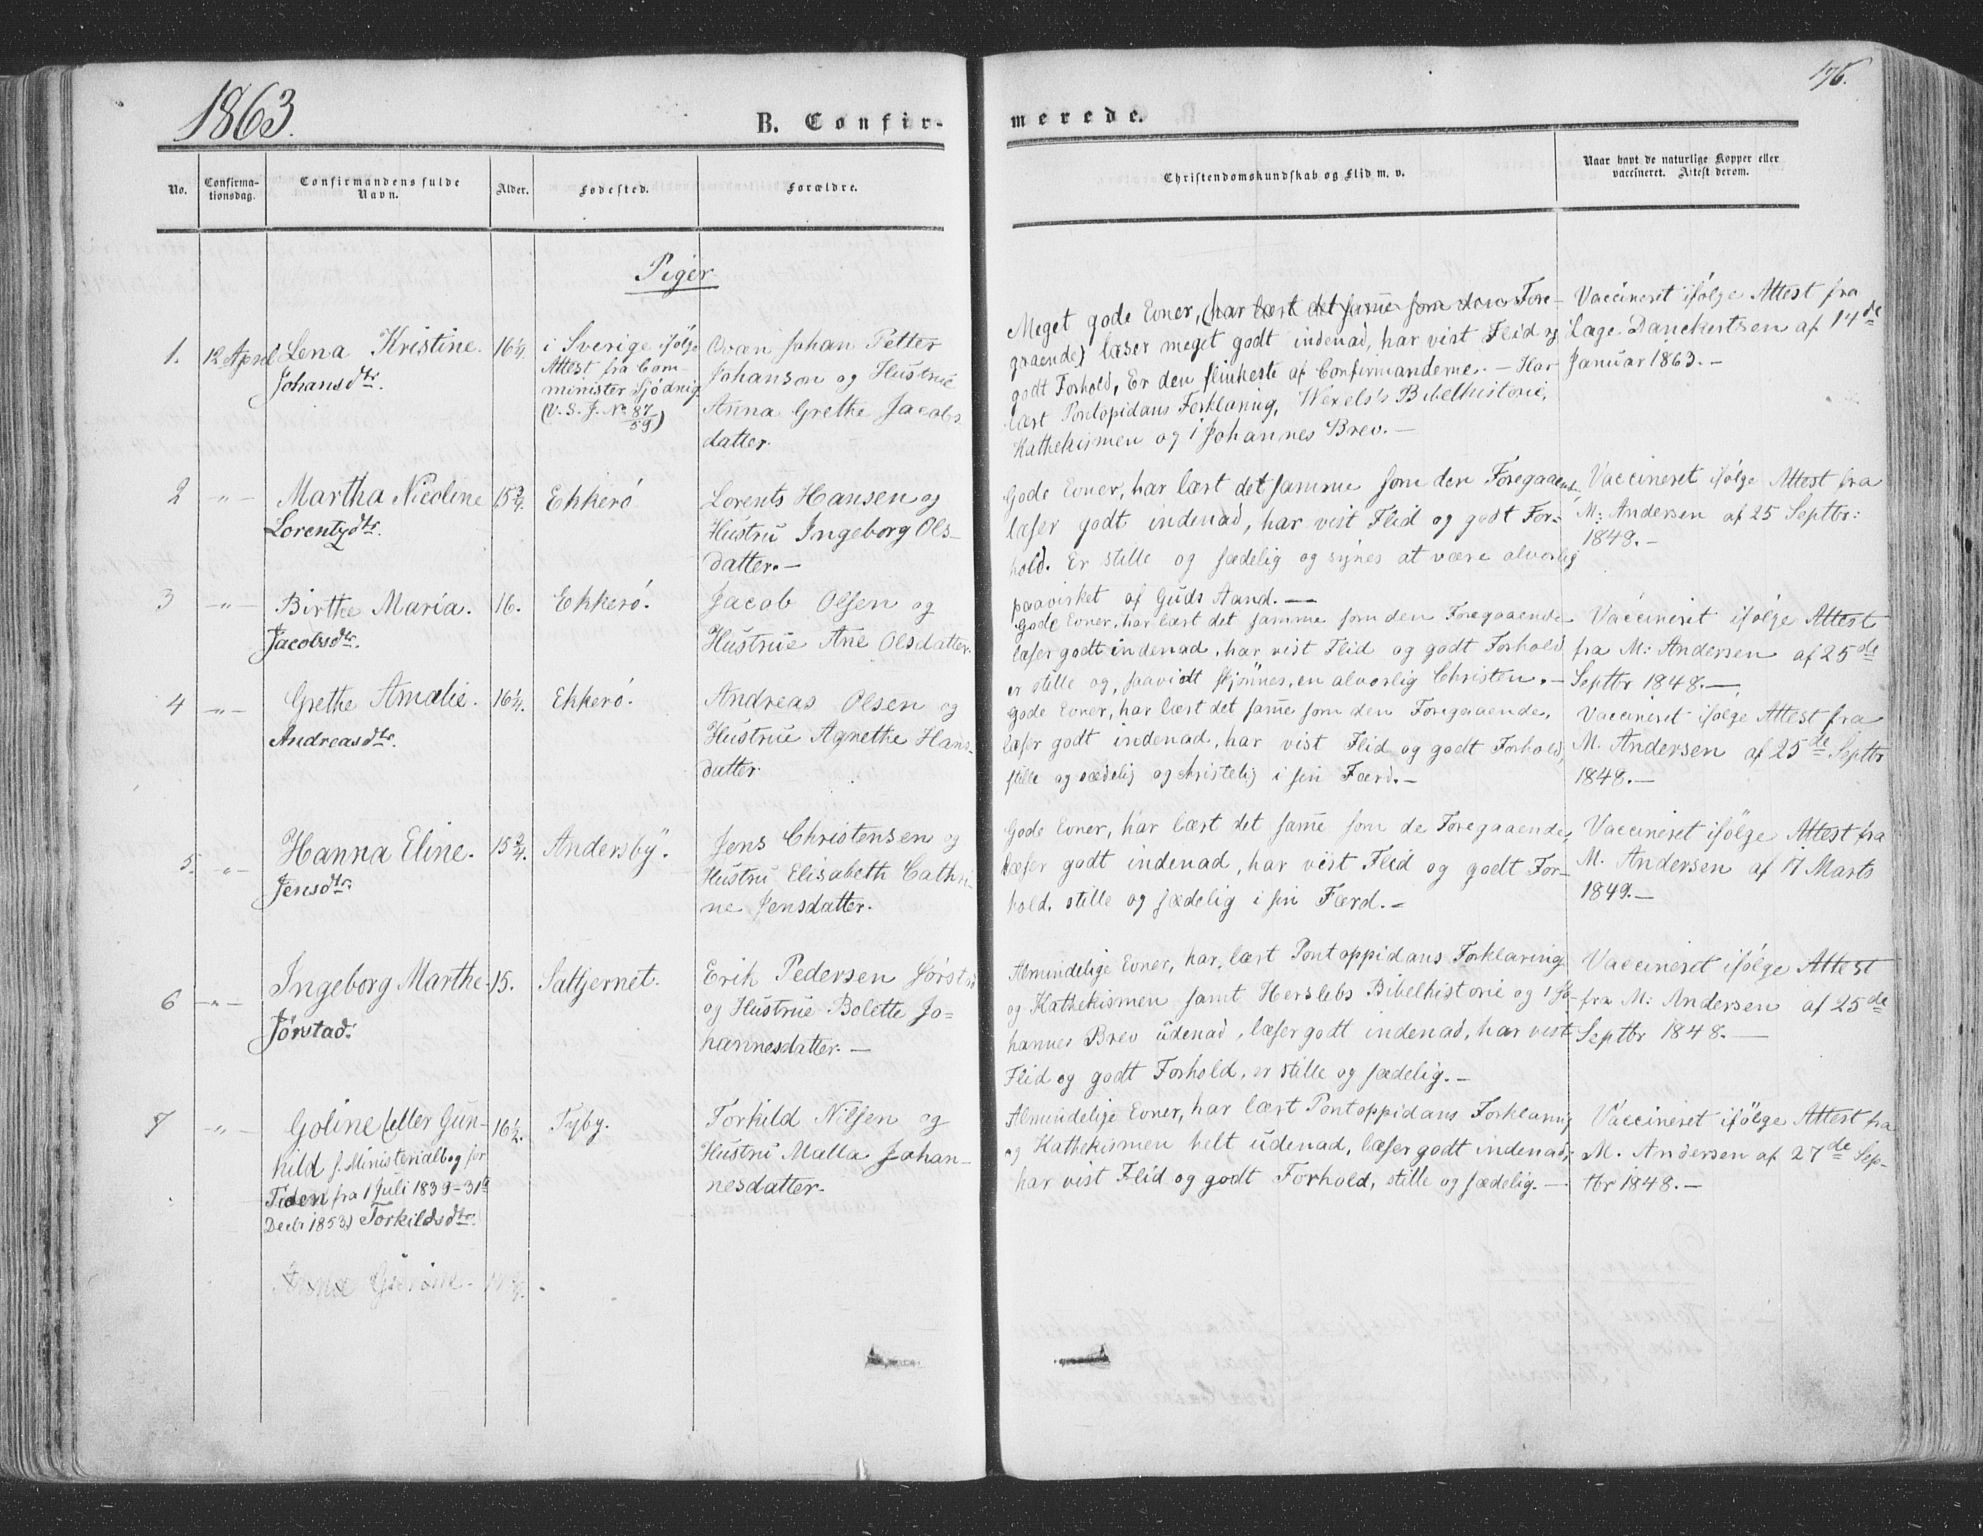 1863.
176.
B. Confir-
merede.
No.
Confirma-
tionsdag.
Confirmandens fulde
Navn.
Alder.
Fødested.
Forældre.
Christendomskundskab og Flid m. v.
Naar havt de naturlige Kopper eller
vaccineret. Attest derom.
Piger
1.
12 April
Lena Kristine.
Johansdtr.
16¼
i Sverige ifølge
Attest fra Com-
minister Sjödnig
(V. S. J. No. 87/59)
Qvæn Johan Petter
Johanson og Hustrue
Anna Grethe Jacobs
datter.
Meget gode Evner, (har lært det samme som den Fore-
gaaende) læser meget godt indenad, har vist Flid og
godt Forhold, Er den flinkeste af Confirmanderne. - Har
lært Pontopidans Forklaring, Wexels's Bibelhistorie,
Kathekismen og 1 Johannes Brev. -
Vaccineret ifølge Attest fra
Læge Danckertsen af 14de
Januar 1863. -
2
-"-
Martha Nicoline
Lorentzdtr.
15¾.
Ekkerö
Lorents Hansen og
Hustru Ingeborg Ols-
datter. -
Gode Evner, har lært det samme som den Foregaaende,
læser godt indenad, har vist Flid og godt For-
hold. Er stille og sædelig og synes at være alvorlig
paavirket af Guds Aand. -
Vaccineret ifølge Attest fra
M: Andersen af 25 Septbr:
1848. -
3
-"-
Birthe Maria.
Jacobsdtr.
16.
Ekkerö.
Jacob Olsen og
Hustrue Ane Olsdatter.
Gode Evner, har lært det samme som den Foregaaende
læser godt indenad, har vist Flid og godt Forhold,
er stille og, saavidt skjönnes, en alvorlig Christen. -
Vaccineret ifølge Attest
fra M: Andersen af 25de
Septbr 1848. -
4
-"-
Grethe Amalie.
Andreasdtr.
16¼.
Ekkerö.
Andreas Olsen og
Hustrue Agnethe Hans-
datter
Gode Evner, har lært det same som den Foregaaende,
læser godt indenad, har vist Flid og godt Forhold,
stille og sædelig og christelig i sin Færd. -
Vaccineret ifølge Attest fra
M. Andersen af 25de Septbr
1848. -
5.
-"-
Hanna Eline.
Jensdtr.
15¾.
Andersby.
Jens Christensen og
Hustru Elisabeth Cathri-
ne Jensdatter.
Gode Evner, har lært det same som de Foregaaende,
læser godt indenad, har vist Flid og godt For-
hold, stille og sædelig i sin Færd. -
Vaccineret ifølge Attest fra
M. Andersen af 17 Marts
1849. -
6
-"-
Ingeborg Marthe
Jørstad.
15.
Saltjernet.
Erik Pedersen Jørstad
og Hustrue Bolette Jo-
hannesdatter. -
Almindelige Evner, har lært Pontoppidans Forklaring
og Kathekismen samt Herslebs Bibelhistorie og 1 Jo-
hannes Brev udenad, læser godt indenad, har vist
Flid og godt Forhold, er stille og sædelig. -
Vaccineret ifølge Attest
fra M: Andersen af 25de
Septbr 1848. -
7
-"-
Goline (eller Gun-
hild s. Ministerialbog for
Tiden fra 1 Juli 1839-31te
Decbr 1853) Torkildsdtr.
16½.
Tyby.
Torkild Nilsen og
Hustru Malla Johan-
nesdatter.
Almindelige Evner, har lært Pontoppidans Forklaring
og Kathekismen helt udenad, læser godt indenad,
har vist Flid og godt Forhold, stille og sædelig. -
Vaccineret ifølge Attest fra
M. Andersen af 27de Sep-
tbr 1848. -